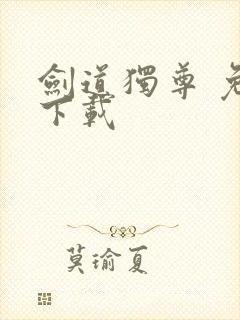 劍道獨尊
下載
莫瑜夏